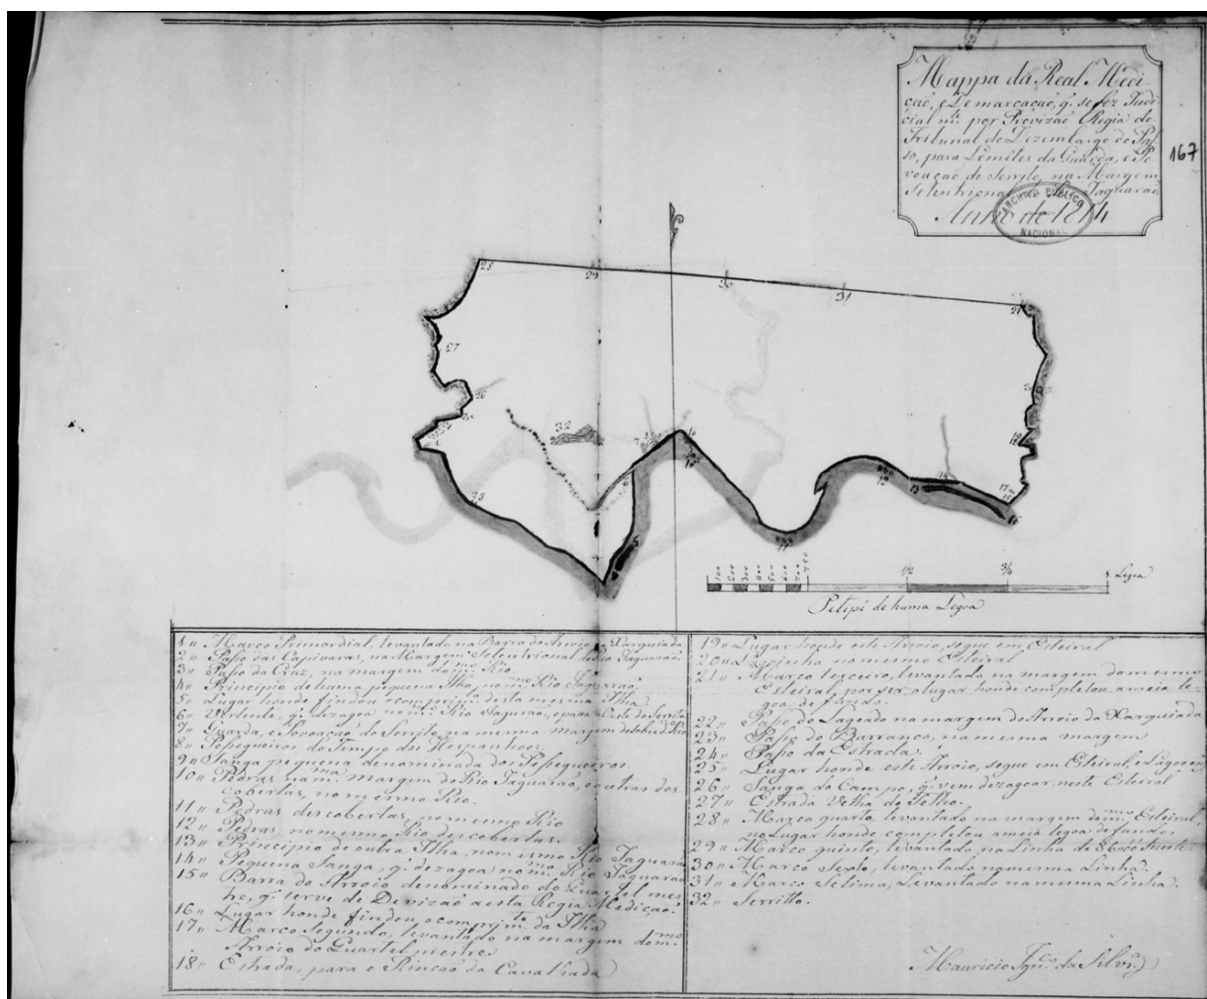 Mappa da Real Medi-
ção, e Demarcação, q. se fez Judi-
cial m.te por Provizão Regia do
Tribunal do Dezembargo do Pas-
so, para Lemites da Guarda, e Po-
voação do Serrito, na Margem
Setentrional do Jaguarão
Anno de 1814
ARCHIVO PUBLICO
NACIONAL
167
28
29
30
31
21
27
26
32
7
5
23
11
12
13
14
17
16
100 200 300 400 500 600 700 750 1/2 3/4 1 Legoa
Petipé de huma Legoa
1 „ Marco Primordial, levantado na Barra do Arroio da Xarquiada
2 „ Passo das Capivaras, na Margem Setentrional do Rio Jaguarão
3 „ Passo da Cruz, na margem do m.mo Rio.
4 „ Principio de huma pequena Ilha, no m.mo Rio Jaguarão
5 „ Lugar honde findou o comprim.to desta mesma Ilha
6 „ Vertente, q. dezagoa no m.mo Rio Jaguarão, e para o Oeste do Serrito
7 „ Guarda, e Povoação do Serrito, na mesma margem deste Rio
8 „ Pesqueiros do Tempo dos Hespanhoes.
9 „ Sanga pequena denominada dos Pesqueiros
10 „ Pedras na m.ma margem do Rio Jaguarão, e outras des-
cobertas, no mesmo Rio.
11 „ Pedras descobertas, no mesmo Rio
12 „ Pedras, no mesmo Rio descobertas.
13 „ Principio de outra Ilha, no mesmo Rio Jaguarão
14 „ Pequena Sanga, q. dezagoa no m.mo Rio Jaguarão
15 „ Barra do Arroio denominado do Quartel mes-
tre, q. serve de Devizão a esta Regia Medição.
16 „ Lugar honde findou, o comprim.to da Ilha
17 „ Marco Segundo, levantado na margem do m.mo
Arroio do Quartel mestre
18 „ Estrada, para o Rincão da Cavalhada
19 „ Lugar honde este Arroio, segue em Esteiral
20 „ Lagoinho no mesmo Esteiral
21 „ Marco terceiro, levantado na margem do mesmo
Esteiral, por ser o lugar honde completou a meia le-
goa de fundo.
22 „ Passo do Lageado na margem do Arroio da Xarquiada
23 „ Passo do Barranco, na mesma margem
24 „ Passo da Estrada.
25 „ Lugar honde este Arroio, segue em Esteiral, e Lagoões
26 „ Sanga do Campo, q. vem dezagoar, neste Esteiral
27 „ Estrada Velha do Telho.
28 „ Marco quarto, levantado na margem do m.mo Esteiral,
no Lugar honde completou a meia legoa de fundo.
29 „ Marco quinto, levantado, na Linha de
30 „ Marco Sexto, levantado na mesma Linha.
31 „ Marco Setimo, Levantado na mesma Linha.
32 „ Serritto.
Mauricio Ign.o da Silv.ra